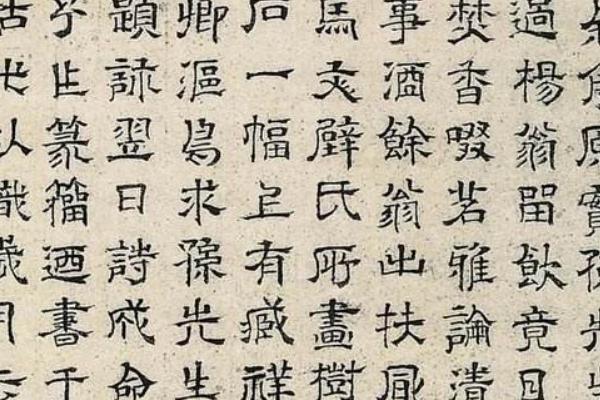 原寶
過楊翁留飲竟日
焚香啜茗雅論清
事酒餘翁出扶風
馬文璧氏所畫樹
石一幅上有臧祥
卿漚鳥求孫先生
題詠翌日詩成命
予篆籀迺書于
以識歲月